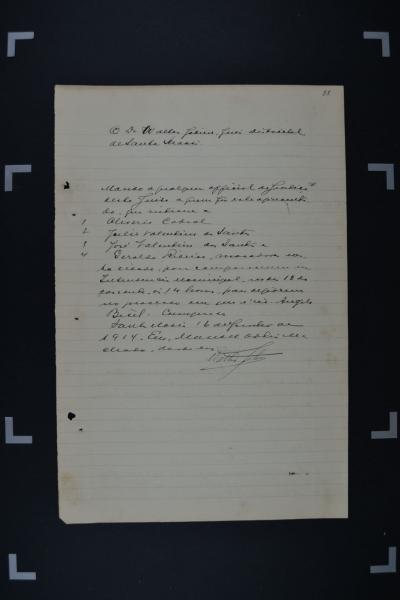 33
O Dr Walter Jobim, Juiz districtal
de Santa Maria.
Mando a qualquer official de Justiça
deste Juizo a quem for este apresenta-
do, que intime a
1 Oliverio Cabral
2 Julio Valentim dos Santos
3 José Valentim dos Santos e
4 Geraldo Ribeiro, moradores
cidade, para comparecerem
Intendencia Municipal, no dia 18 do
corrente, ás 14 horas, para deporem
no processo em que é réo Angelo
Bisel. Cumpra-se.
Santa Maria 16 de Junho de
1914. Eu, Manoel
escrevi